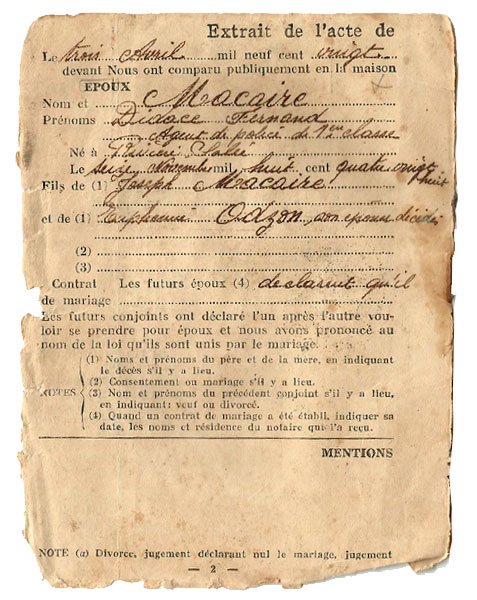 Extrait de l'acte de
Le trois Avril mil neuf cent vingt
devant Nous ont comparu publiquement en la maison
EPOUX
Nom et Macaire
Prénoms Didace Fernand
Agent de police de 1ère classe
Né à Rivière Salée
Le seize Novembre mil huit cent quatre vingt huit
Fils de (1) Joseph Macaire
et de (1) Euphémie Odzon, son épouse décédée
(2)
(3)
Contrat Les futurs époux (4) declarent qu'il
de mariage
Les futurs conjoints ont déclaré l'un après l'autre vou-
loir se prendre pour époux et nous avons prononcé au
nom de la loi qu'ils sont unis par le mariage.
(1) Noms et prénoms du père et de la mère, en indiquant
le décès s'il y a lieu.
(2) Consentement ou mariage s'il y a lieu.
NOTES (3) Nom et prénoms du précédent conjoint s'il y a lieu,
en indiquant: veuf ou divorcé.
(4) Quand un contrat de mariage a été établi, indiquer sa
date, les noms et résidence du notaire qui l'a reçu.
MENTIONS
NOTE (a) Divorce, jugement déclarant nul le mariage, jugement
— 2 —